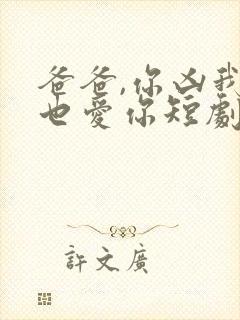 爸爸,你凶我
也愛你短劇
許文廣